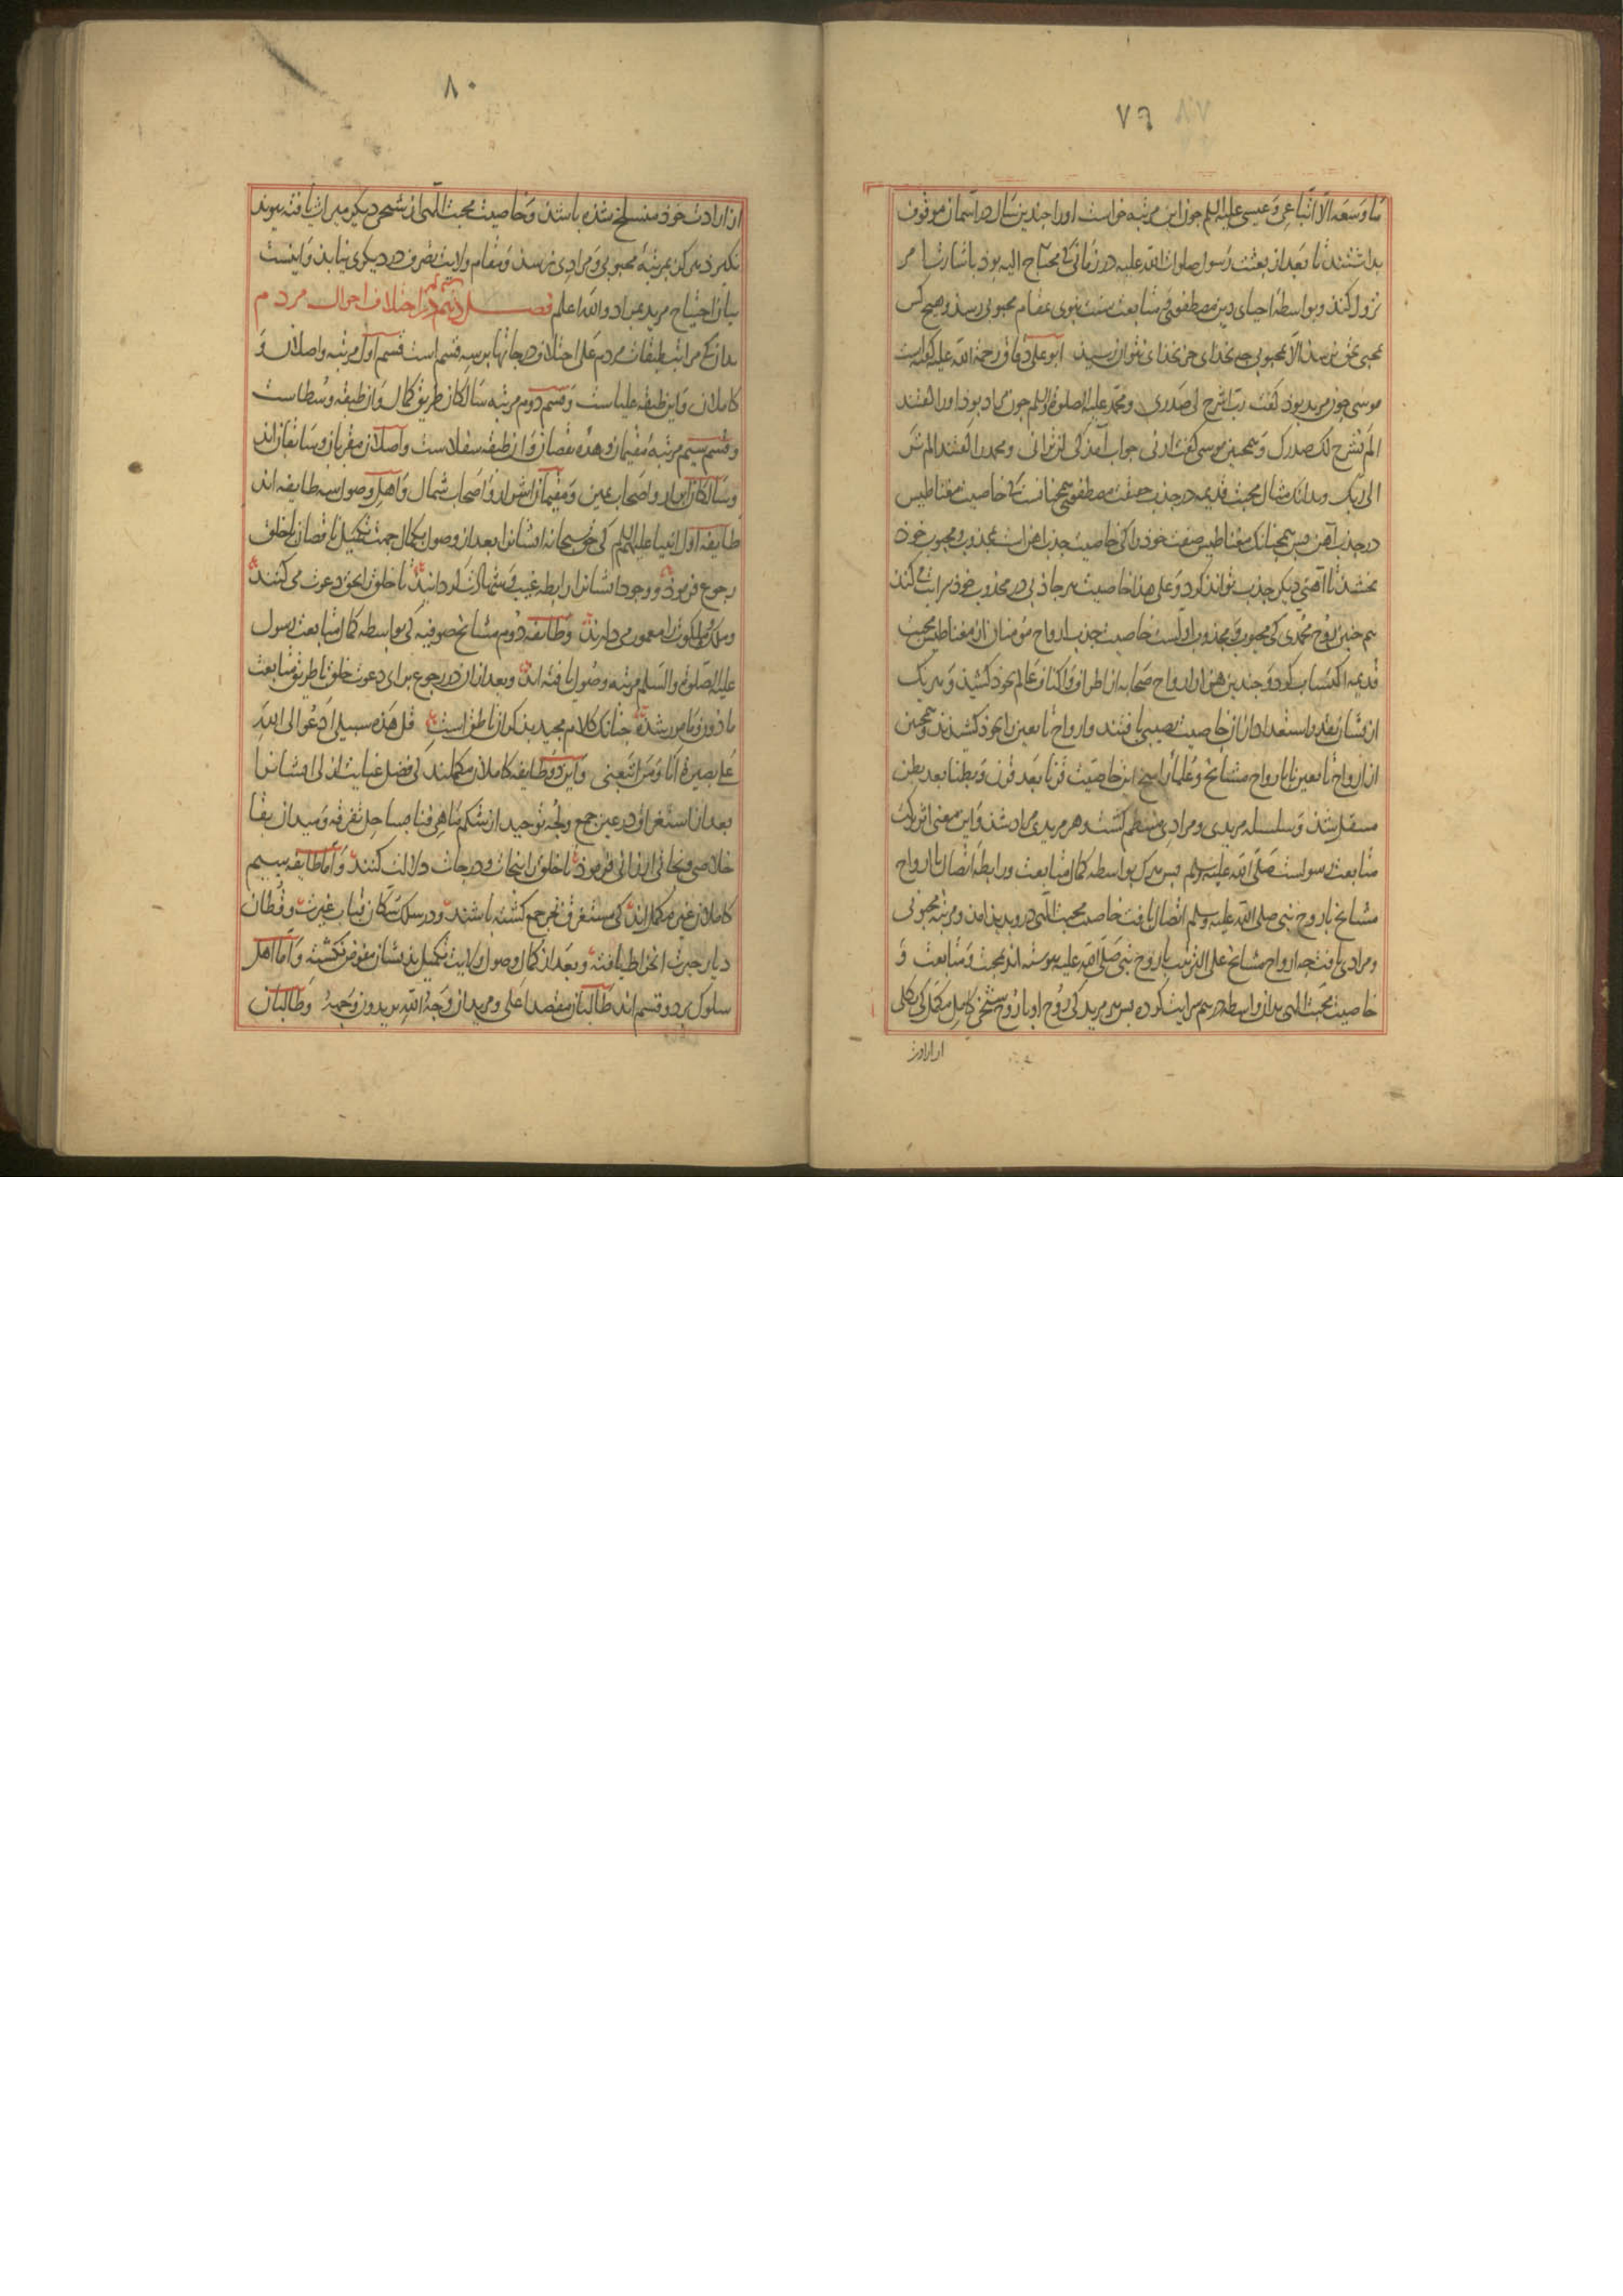 ٧٩ ٨٧
ما وسعه الا اتباعی و عیسی علیه السلم جون این مرتبه خواست او را جندین سال در اسمان موقوف
بداشتند تا بعد از بعثت رسول صلوات الله علیه در زمانی که محتاج الیه بوذ باشارت
نزول کند و بواسطهٔ احیای دین مصطفوی و متابعت سنت نبوی بمقام محبوبی رسذ و هیج کس
محبی بحق نرسذ الا بمحبوبی جه بخذای جز بخذای نتوان رسیذ ابو علی دقاق رحمة الله علیه کفته است
موسی جون مرید بوذ کفت رب اشرح لی صدری و محمد علیه الصلوة والسلم جون مراد بوذ او را کفتند
الم نشرح لک صدرک و همجنین موسی کفت ارنی جواب آمذ کی لن ترانی و محمد را کفتند الم تر
الی ربک و بدانک مثال محبت قدیمه در جذب حقیقت مصطفوی همجنانست که خاصیت مغناطیس
در جذب آهن بس همجنانک مغناطیس صفت خوذ را کی خاصیت جذب اهن است بمجذوب و محبوب خوذ
بخشذ تا آهنی دیکر جذب تواند کرد و علی هذا خاصیت هر جاذبی در مجذوب خوذ سرایت می کند
هم جنین روح محمدی کی محبوب و مجذوب اولست خاصیت جذب ارواح مؤمنان از مغناطیس محبت
قدیمه اکتساب کرد و جندین هزار ارواح صحابه از اطراف و اکناف عالم بخوذ کشیذ و هر یک
ازیشان بقدر استعداد از ان خاصیت نصیبی یافتند و ارواح تابعین را بخوذ کشیذند و همجنین
از ارواح تابعین تا بارواح مشایخ و علماء راسخ این خاصیت قرنا بعد قرن و بطنا بعد بطن
منتقل شذ و سلسله مریدی و مرادی منتظم کشت و هر مریدی مراد شذ و این معنی اثر برکت
متابعت رسولست صلی الله علیه و سلم بس هر ک بواسطه کمال متابعت و رابطهٔ اتصال با ارواح
مشایخ با روح نبی صلی الله علیه و سلم اتصال یافت خاصیت محبت الهی درو پدید امذ و مرتبه محبوبی
و مرادی یافت جه ارواح مشایخ علی الترتیب با روح نبی صلی الله علیه پیوسته اند بمحبت و متابعت و
خاصیت محبت الهی بدان واسطه در هم سرایت کرده بس هر مرید کی روح او با روح شیخی کامل مکمل کی بکلی
از ارادت
٨٠
از ارادت خوذ منسلخ شذه باشذ و خاصیت محبت الهی از شیخی دیکر میراث یافته پیوند
نکیرد هرکز بمرتبه محبوبی و مرادی نرسذ و مقام ولایت تصرف در دیکری نیابذ و اینست
بیان احتیاج مرید بمراد والله اعلم فصل دهم در اختلاف احوال مردم
بدانک مراتب طبقات مردم علی اختلاف درجاتها بر سه قسم است قسم اول مرتبه واصلان و
کاملان و این طبقه علیاست و قسم دوم مرتبه سالکان طریق کمال و ان طبقه وسطاست
و قسم سیم مرتبه مقیمان وهدهٔ نقصان و ان طبقه سفلاست واصلان مقربان و سابقان اند
و سالکان ابرار و اصحاب یمین و مقیمان اشرار و اصحاب شمال و اهل وصول سه طایفه اند
طایفه اول انبیا علیهم السلم کی حق سبحانه ایشانرا بعد از وصول بکمال جهت تکمیل ناقصان با خلق
رجوع فرموذ و وجود ایشانرا رابطه غیب و شهادت کردانیذ تا خلق را بحق دعوت می کنند
و ملک و ملکوت را معمور می دارند و طایفه دوم مشایخ صوفیه کی بواسطه کمال متابعت رسول
علیه الصلوة والسلم مرتبه وصول یافته اند و بعد از ان در رجوع برای دعوت خلق بطریق متابعت
ماذون و مامور شده جنانک کلام مجید بذکر ان ناطق است قل هذه سبیلی ادعوا الی الله
علی بصیرة انا و من اتبعنی و این دو طایفه کاملان مکملند کی فضل عنایت ازلی ایشانرا
بعد از استغراق در عین جمع و لجه توحید از شکم ماهی فنا بساحل تفرقه و میدان بقا
خلاصی و نجاتی ارزانی فرموذ تا خلق را بنجات و درجات دلالت کنند و اما طایفه سیم
کاملان غیر مکمل اند کی مستغرق بحر جمع کشته باشند و در سلک سکان قباب غیرت و قطان
دیار حیرت انخراط یافته و بعد از کمال وصول ولایت تکمیل بذیشان مفوض نکشته و اما اهل
سلوک بر دو قسم اند طالبان مقصد اعلی و مریدان وجه الله یریدون وجهه و طالبان